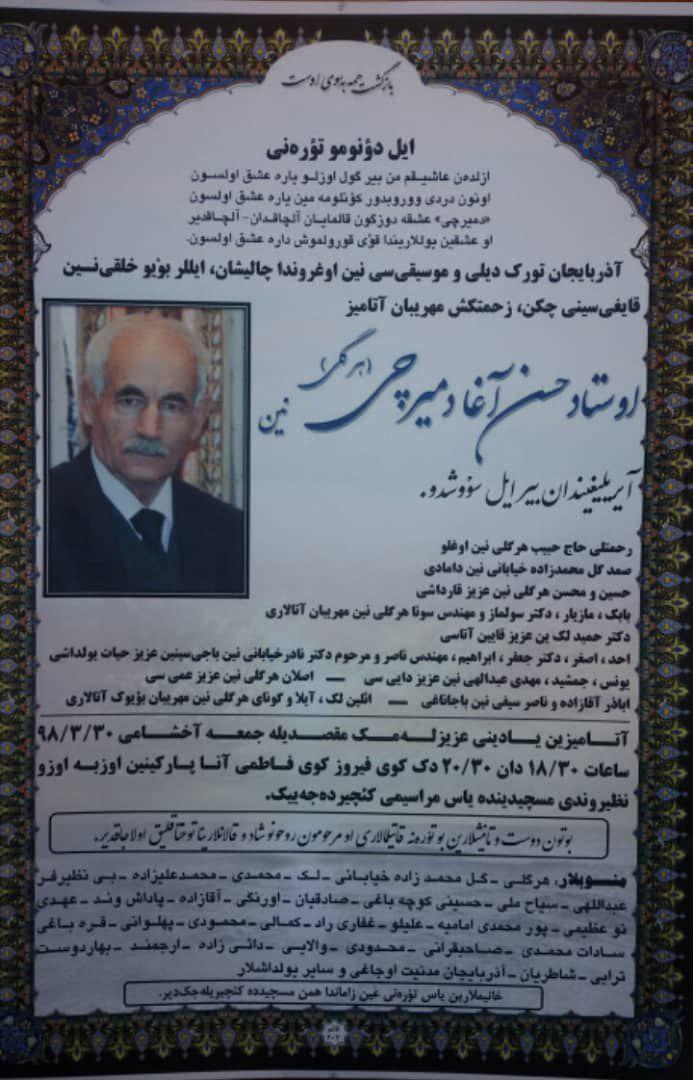 بازگشت همه بسوی اوست
ایل دؤنومو تؤره‌نی
ازلدەن عاشیقم من بیر گول اوزلو یاره عشق اولسون
اونون دردی ووروبدور کؤنلومه مین یاره عشق اولسون
«دمیرچی» عشقه دوزگون قالمایان آلچاقدان- آلچاقدیر
او عشقین یوللاریندا قؤی قورولموش داره عشق اولسون.
آذربایجان تورک دیلی و موسیقی‌سی نین اوغروندا چالیشان، ایللر بؤیو خلقی‌نین
قایغی‌سینی چکن، زحمتکش مهریبان آتامیز
اوستاد حسن آغا دمیرچی (هرگلی) نین
آیریلیغیندان بیر ایل سؤووشدو.
رحمتلی حاج حبیب هرگلی نین اوغلو
صمد گل محمدزاده خیابانی نین دامادی
حسین و محسن هرگلی نین عزیز قارداشی
بابک، مازیار، دکتر سولماز و مهندس سونا هرگلی نین مهریبان آتالاری
دکتر حمید لک ین عزیز قایین آتاسی
احد، اصغر، دکتر جعفر، ابراهیم، مهندس ناصر و مرحوم دکتر نادرخیابانی نین باجی‌سینین عزیز حیات یولداشی
یونس، جمشید، مهدی عبدالهی نین عزیز دایی سی — اصلان هرگلی نین عزیز عمی سی
اباذر آقازاده و ناصر سیفی نین باجاناغی — ائلین لک، آیلا و گونای هرگلی نین مهریبان بؤیوک آتالاری
آتامیزین یادینی عزیزله‌مک مقصدیله جمعه آخشامی ۹۸/۳/۳۰
ساعات ۱۸/۳۰ دان ۲۰/۳۰ دک کوی فیروز کوی فاطمی آنا پارکینین اوزبه اوزو
نظیروندی مسچیدینده یاس مراسیمی کئچیرده‌جه‌ییک.
بوتون دوست و تانیشلارین بو تؤره‌نه قاتیلمالاری او مرحومون روحونو شاد و قالانلارینا توختاقلیق اولاجاقدیر.
منسوبلار، هرگلی - گل محمد زاده خیابانی - لک - محمدی - محمدعلیزاده - بی نظیرفر
عبداللهی - سیاح ملی - حسینی کوچه باغی - صادقیان - اورنگی - آقازاده - پاداش وند - عهدی
نو عظیمی - پور محمدی امامیه - علیلو - غفاری راد - کمالی - محمودی - پهلوانی - قره باغی
سادات محمدی - صاحبقرانی - محدودی - والایی - دائی زاده - ارجمند - بهاردوست
ترابی - شاطریان - آذربایجان مدنیت اوجاغی و سایر یولداشلار
خانیملارین یاس تؤره‌نی عین زاماندا همن مسچیدده کئچیریله‌جک‌دیر.